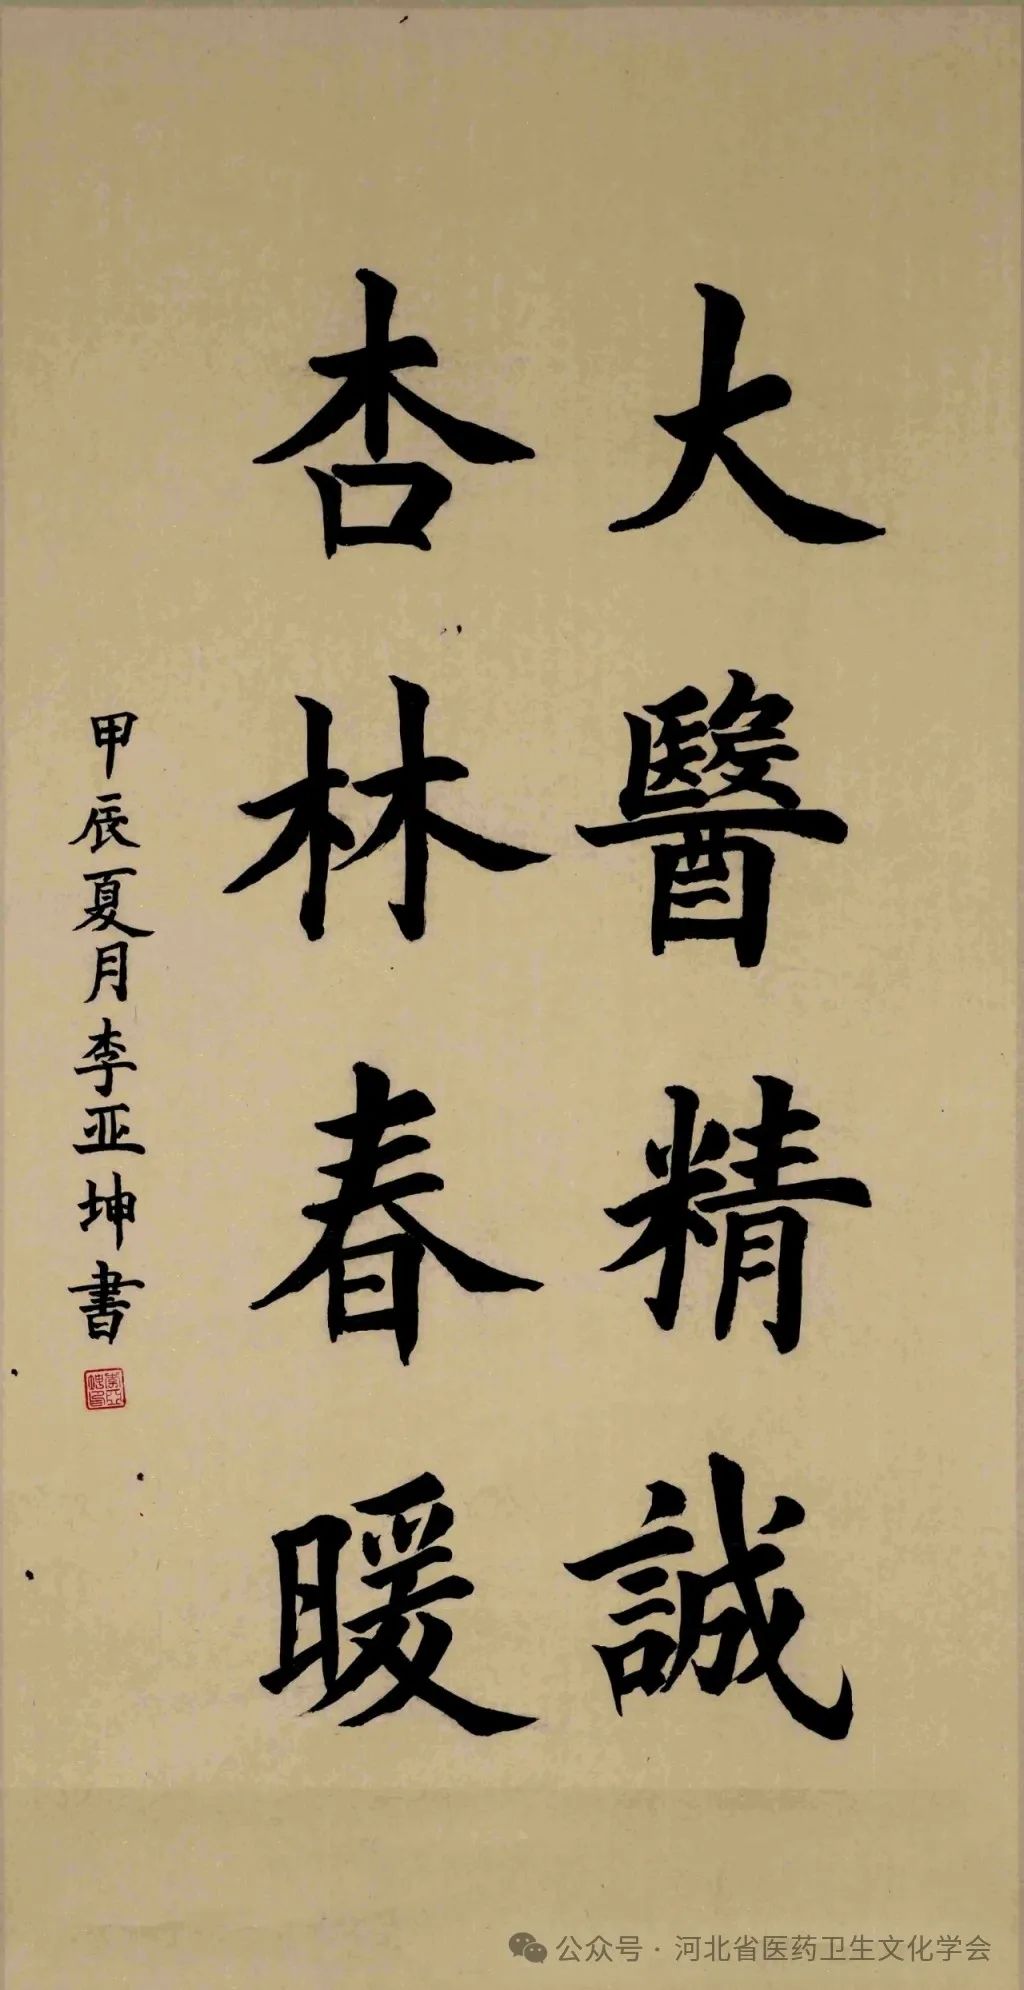 大醫精誠
杏林春暖
甲辰夏月李亚坤書
公众号·河北省医药卫生文化学会